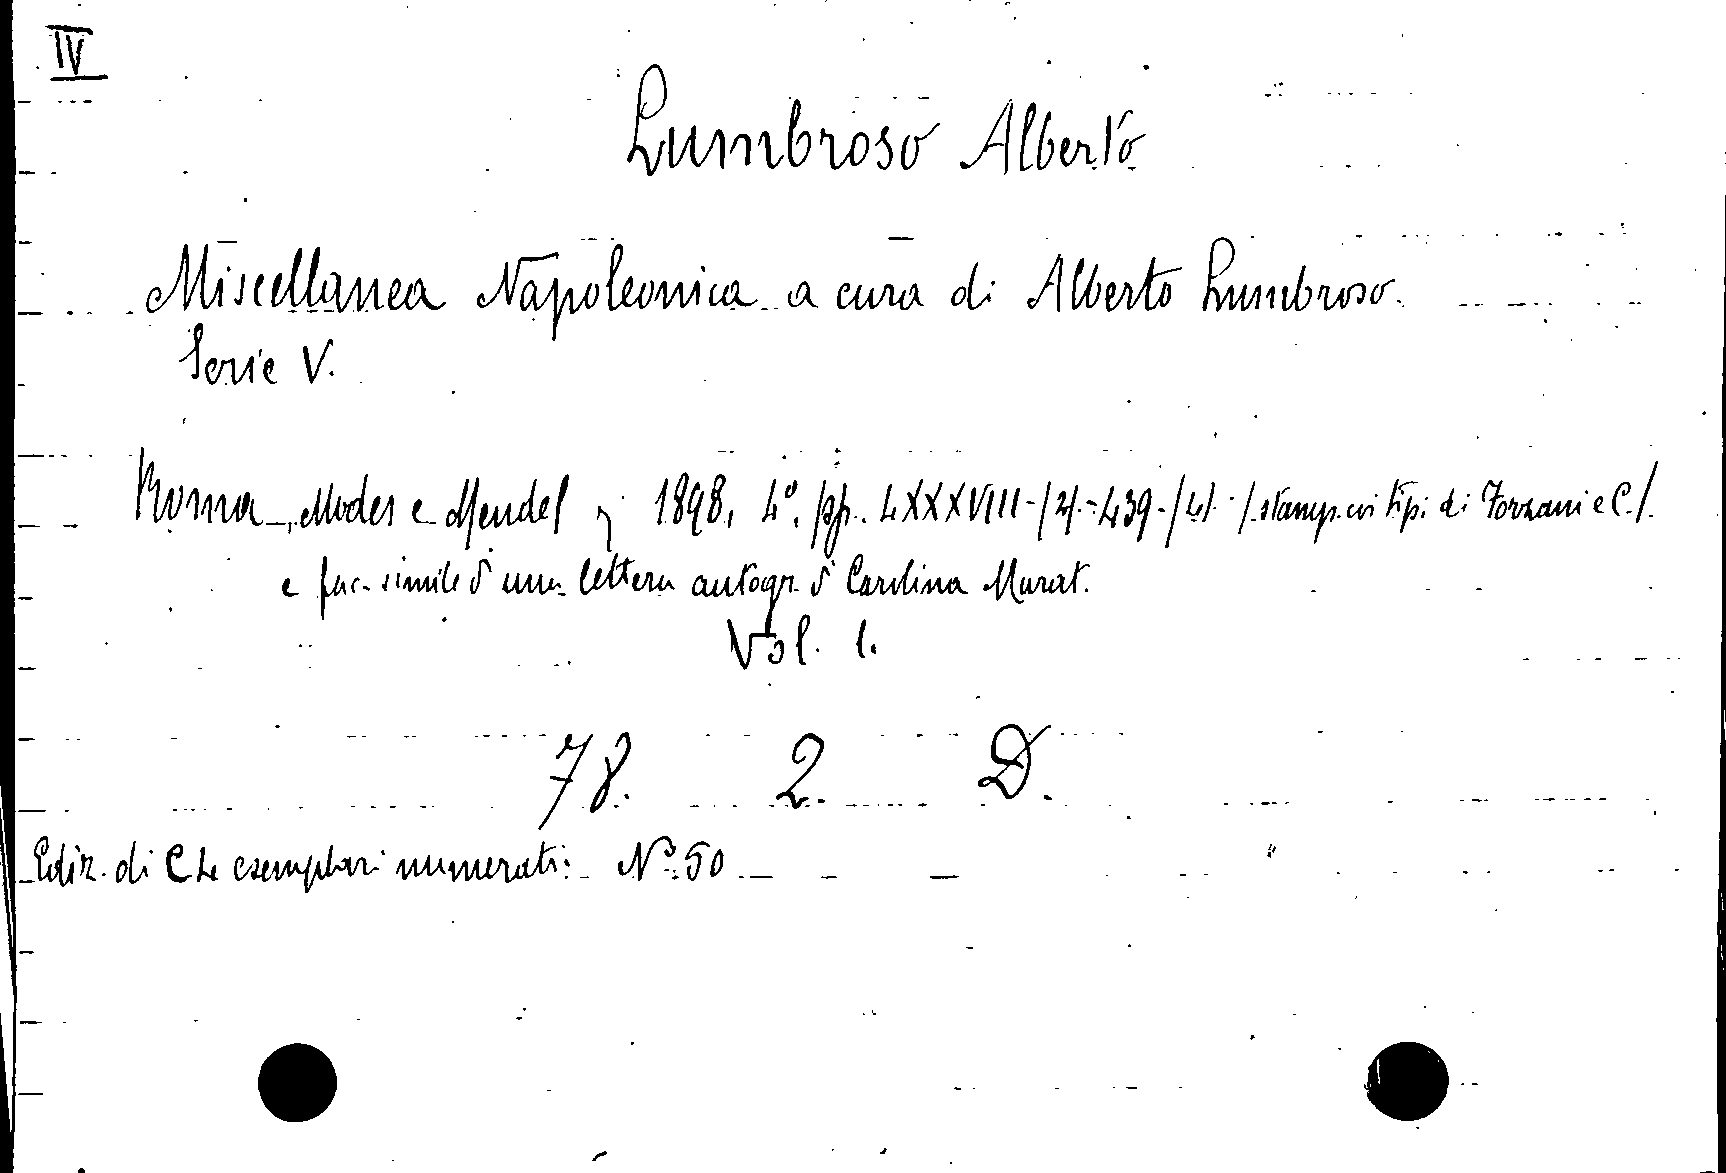 IV
Lumbroso Alberto
Miscellanea Napoleonica a cura di Alberto Lumbroso.
Serie V.
Roma, Modes e Mendel, 1898, 4°. pp. LXXXVIII-/2/-439-/4/. /stamp. coi tipi di Forzani e C./
e fac-simile d'una lettera autogr. d' Carolina Murat.
Vol. 1.
78. 2. D.
Ediz. di CL esemplari numerati: N° 50